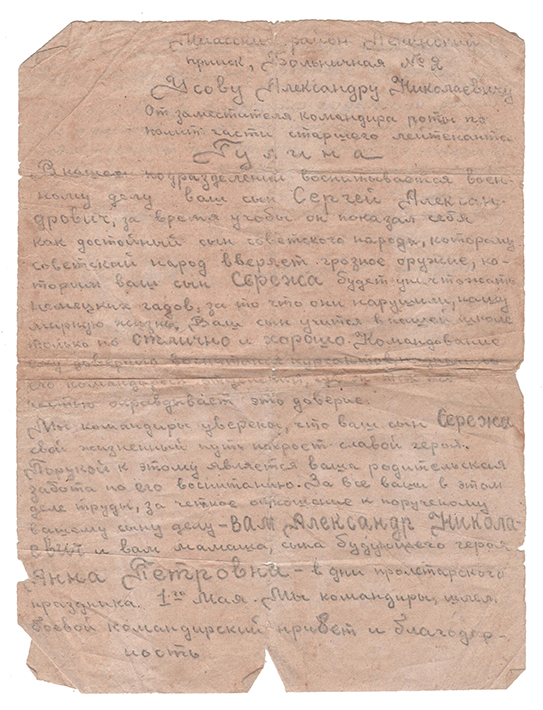 Миасский район Ленинский
прииск, Больничная №2
Усову Александру Николаевичу
От заместителя командира роты по
части старшего лейтенанта
Гулина
В нашем подразделении воспитывается воен-
ному делу ваш сын Сергей Алексан-
дрович, за время учебы он показал себя
как достойный сын советского народа, которому
советский народ вверяет грозное оружие, ко-
торым ваш сын Сережа будет уничтожать
немецких гадов, за то что они нарушили, нашу
мирную жизнь. Ваш сын учится в нашей школе
только на отлично и хорошо. Командование
его командиром
честью оправдывает это доверие.
Мы командиры уверены, что ваш сын Сережа
свой жизненный путь славой героя.
Порукой к этому является ваша родительская
забота по его воспитанию. За все ваши в этом
деле труды, за честное отношение к порученому
вашему сыну делу – Вам Александр Никола-
евич и вам мамаша, сына будующего героя
Анна Петровна – в дни пролетарского
праздника. 1го Мая. Мы командиры, шлем
боевой командирский привет и благодар-
ность